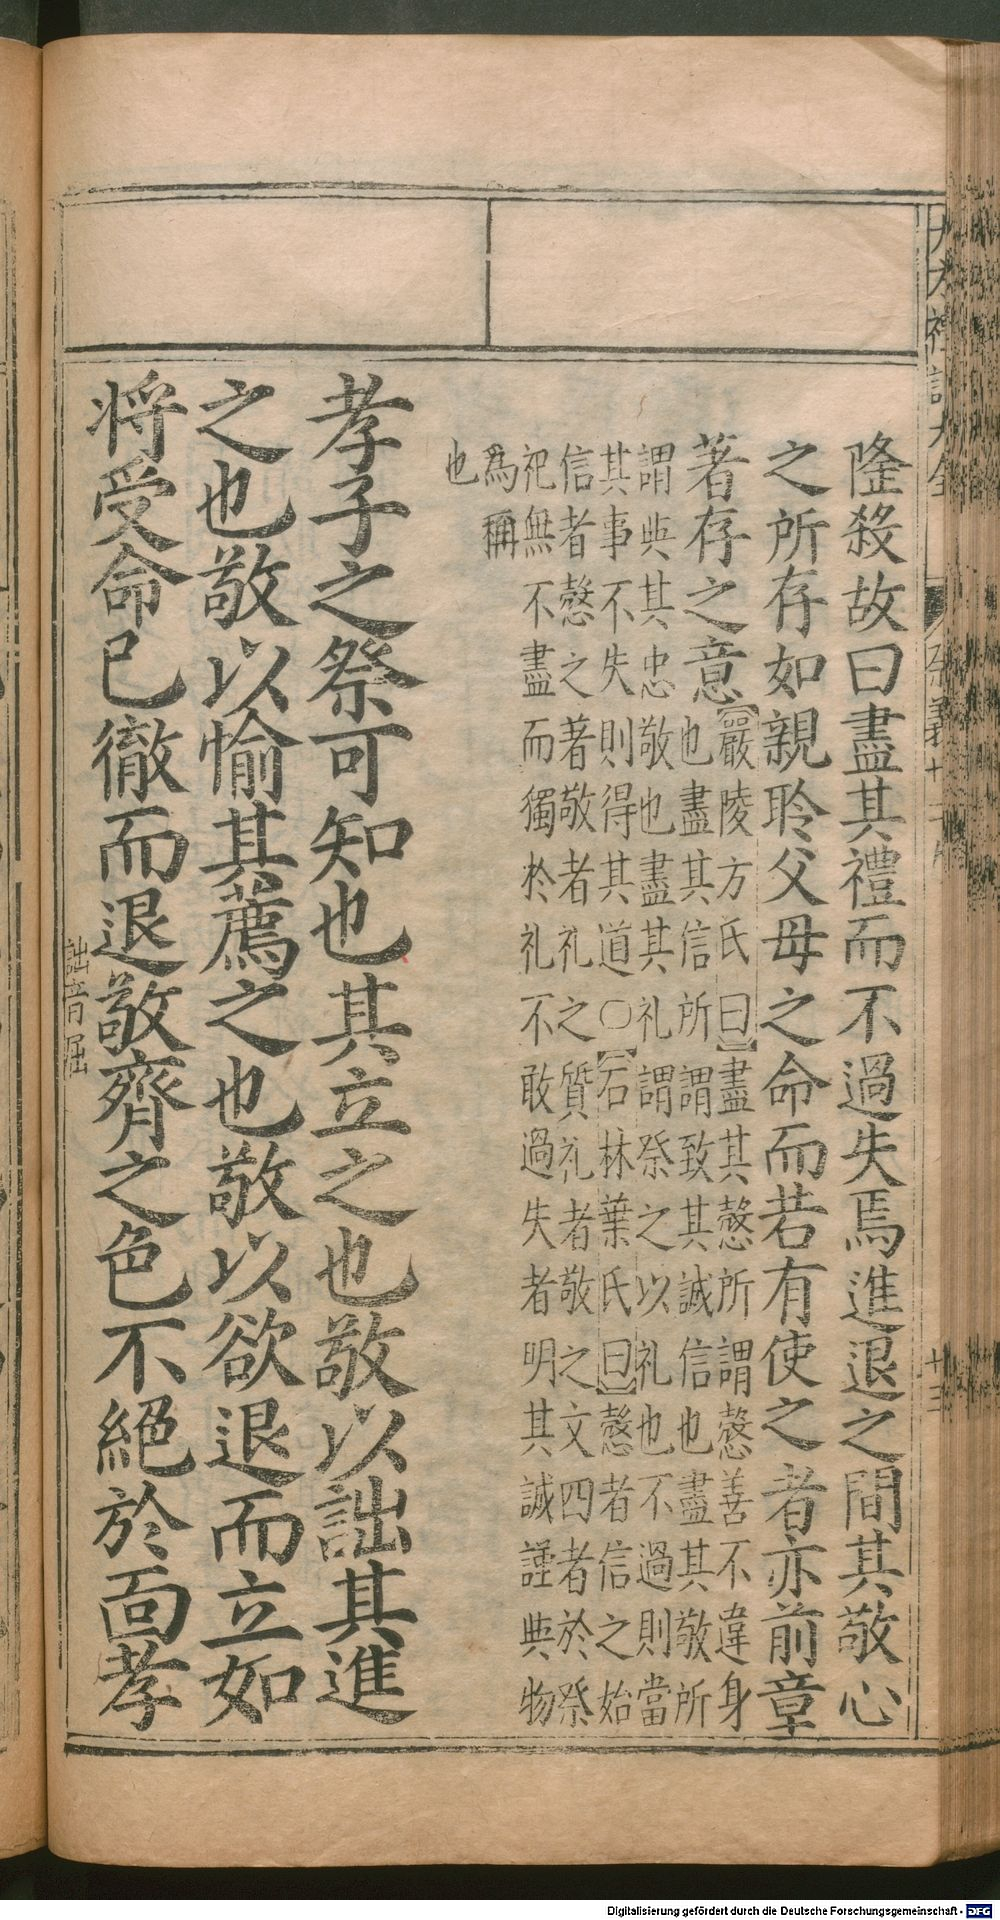 隆殺故曰盡其禮而不過失焉進退之間其敬心
之所存如親聆父母之命而若有使之者亦前章
著存之意【嚴陵方氏曰】盡其慤所謂慤善不違身
也盡其信所謂致其誠信也盡其敬所
謂與其忠敬也盡其礼謂祭之以礼也不過則當
其事不失則得其道○【石林葉氏曰】慤者信之始
信者慤之著敬者礼之質礼者敬之文四者於祭
祀無不盡而獨於礼不敢過失者明其誠謹與物
為稱
也
孝子之祭可知也其立之也敬以詘其進
之也敬以愉其薦之也敬以欲退而立如
將受命已徹而退敬齊之色不絕於面孝
詘音屈
十三
Digitalisierung gefördert durch die Deutsche Forschungsgemeinschaft - DFG